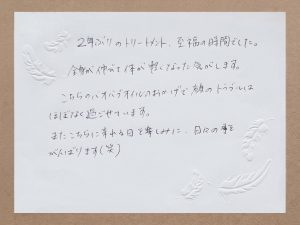 2年ぶりのトリートメント、至福の時間でした。
全身が伸びて体が軽くなった気がします。
こちらのハオバブオイルのおかげで顔のトラブルは
ほぼなく過ごせています。
またこちらに来れる日を楽しみに、日々の事を
がんばります(笑)